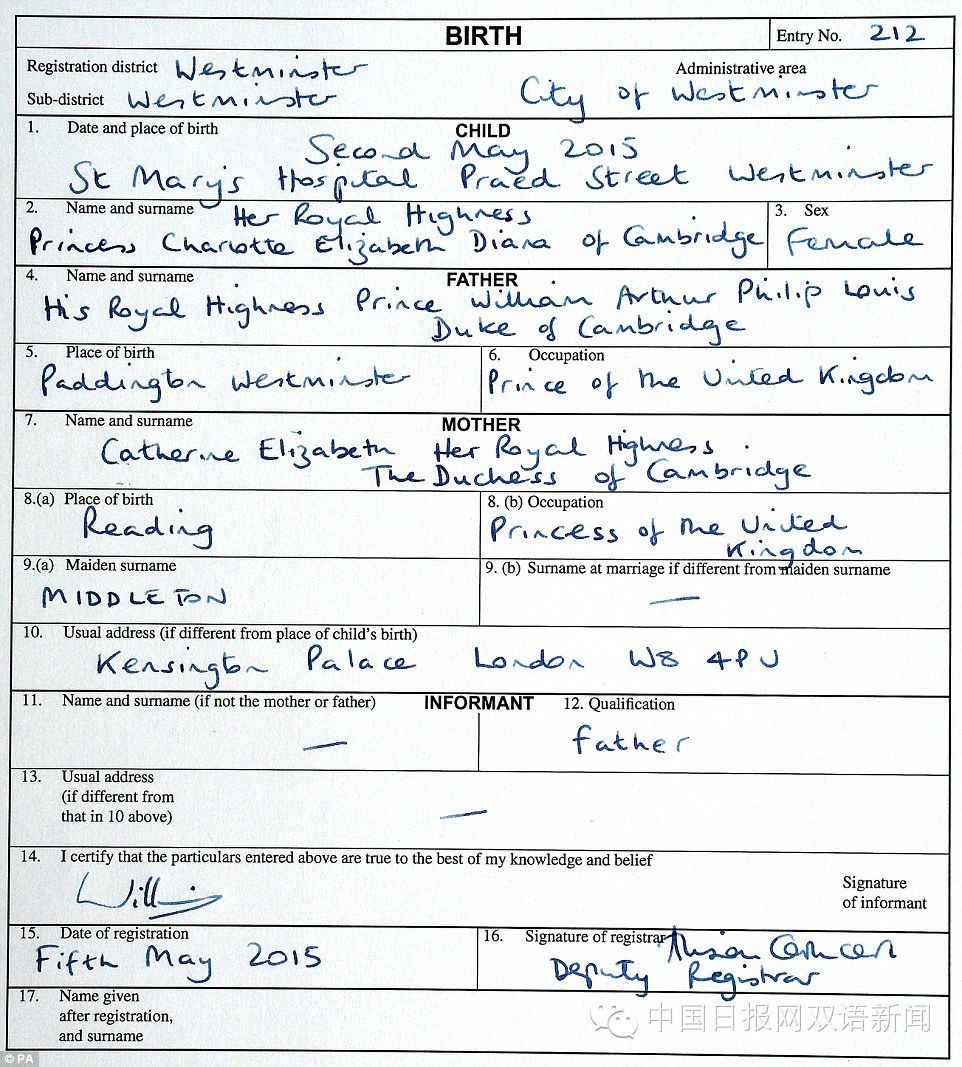 BIRTH
Entry No. 212
Registration district Westminster
Administrative area
Sub-district Westminster
City of Westminster
1. Date and place of birth
CHILD
Second May 2015
St Mary's Hospital Praed Street Westminster
2. Name and surname
Her Royal Highness
Princess Charlotte Elizabeth Diana of Cambridge
3. Sex
Female
4. Name and surname
FATHER
His Royal Highness Prince William Arthur Philip Louis
Duke of Cambridge
5. Place of birth
Paddington Westminster
6. Occupation
Prince of the United Kingdom
7. Name and surname
MOTHER
Catherine Elizabeth Her Royal Highness
The Duchess of Cambridge
8.(a) Place of birth
Reading
8. (b) Occupation
Princess of the United
Kingdom
9.(a) Maiden surname
MIDDLETON
9. (b) Surname at marriage if different from maiden surname
—
10. Usual address (if different from place of child's birth)
Kensington Palace London W8 4PU
11. Name and surname (if not the mother or father)
INFORMANT
—
12. Qualification
Father
13. Usual address
(if different from
that in 10 above)
—
14. I certify that the particulars entered above are true to the best of my knowledge and belief
William
Signature
of informant
15. Date of registration
Fifth May 2015
16. Signature of registrar
Deputy Registrar
17. Name given
after registration,
and surname
中国日报网双语新闻
© PA